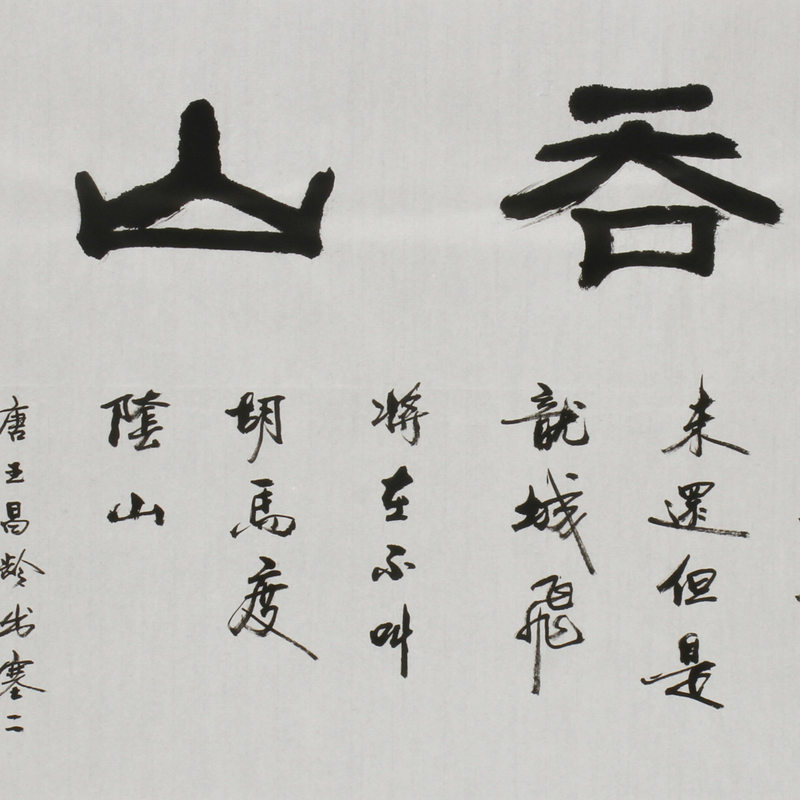 吞山
未還但是
龍城飛
將在不叫
胡馬度
陰山
唐王昌龄出塞二